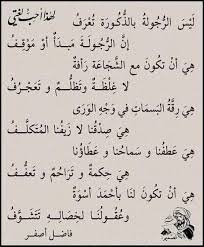 لهذا أحب لغتي
لَيْسَ الرُّجُولَةُ بِالذُّكُورَةِ تُعْرَفُ
إِنَّ الرُّجُولَةَ مَبْدَأٌ أَوْ مَوْقِفُ
هِيَ أَنْ تَكُونَ مَعَ الشَّجَاعَةِ رَأْفَةٌ
لَا غِلْظَةٌ وَتَظَلُّمٌ وَتَعَجْرُفُ
هِيَ رِقَّةُ الْبَسَمَاتِ فِي وَجْهِ الْوَرَى
هِيَ صِدْقُنَا لَا زَيْفُنَا الْمُتَكَلَّفُ
هِيَ عَطْفُنَا وَسَمَاحُنَا وَعَطَاؤُنَا
هِيَ حِكْمَةٌ وَتَرَاحُمٌ وَتَعَفُّفُ
هِيَ أَنْ تَكُونَ لَنَا بِأَحْمَدَ أُسْوَةٌ
وَعُقُولُنَا لِخِصَالِهِ تَتَشَوَّفُ
فاضل أصفر